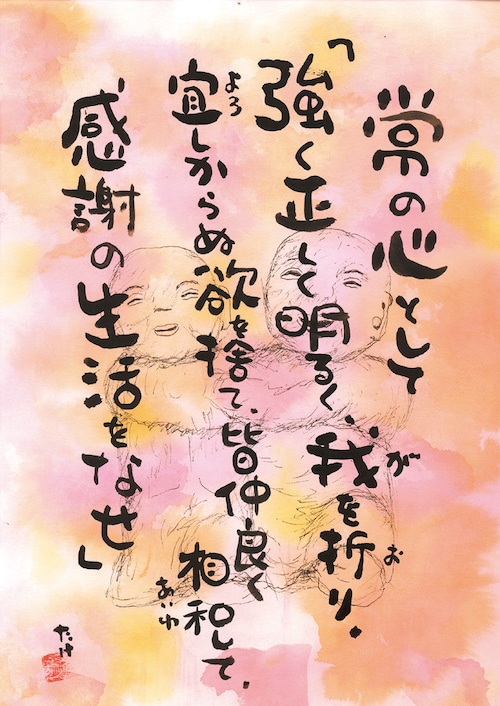 常の心として
「強く正しく明るく、我を折り、
宜しからぬ欲を捨て、皆仲良く相和して、
感謝の生活をなせ」
よろ
が
お
あいわ
たけ